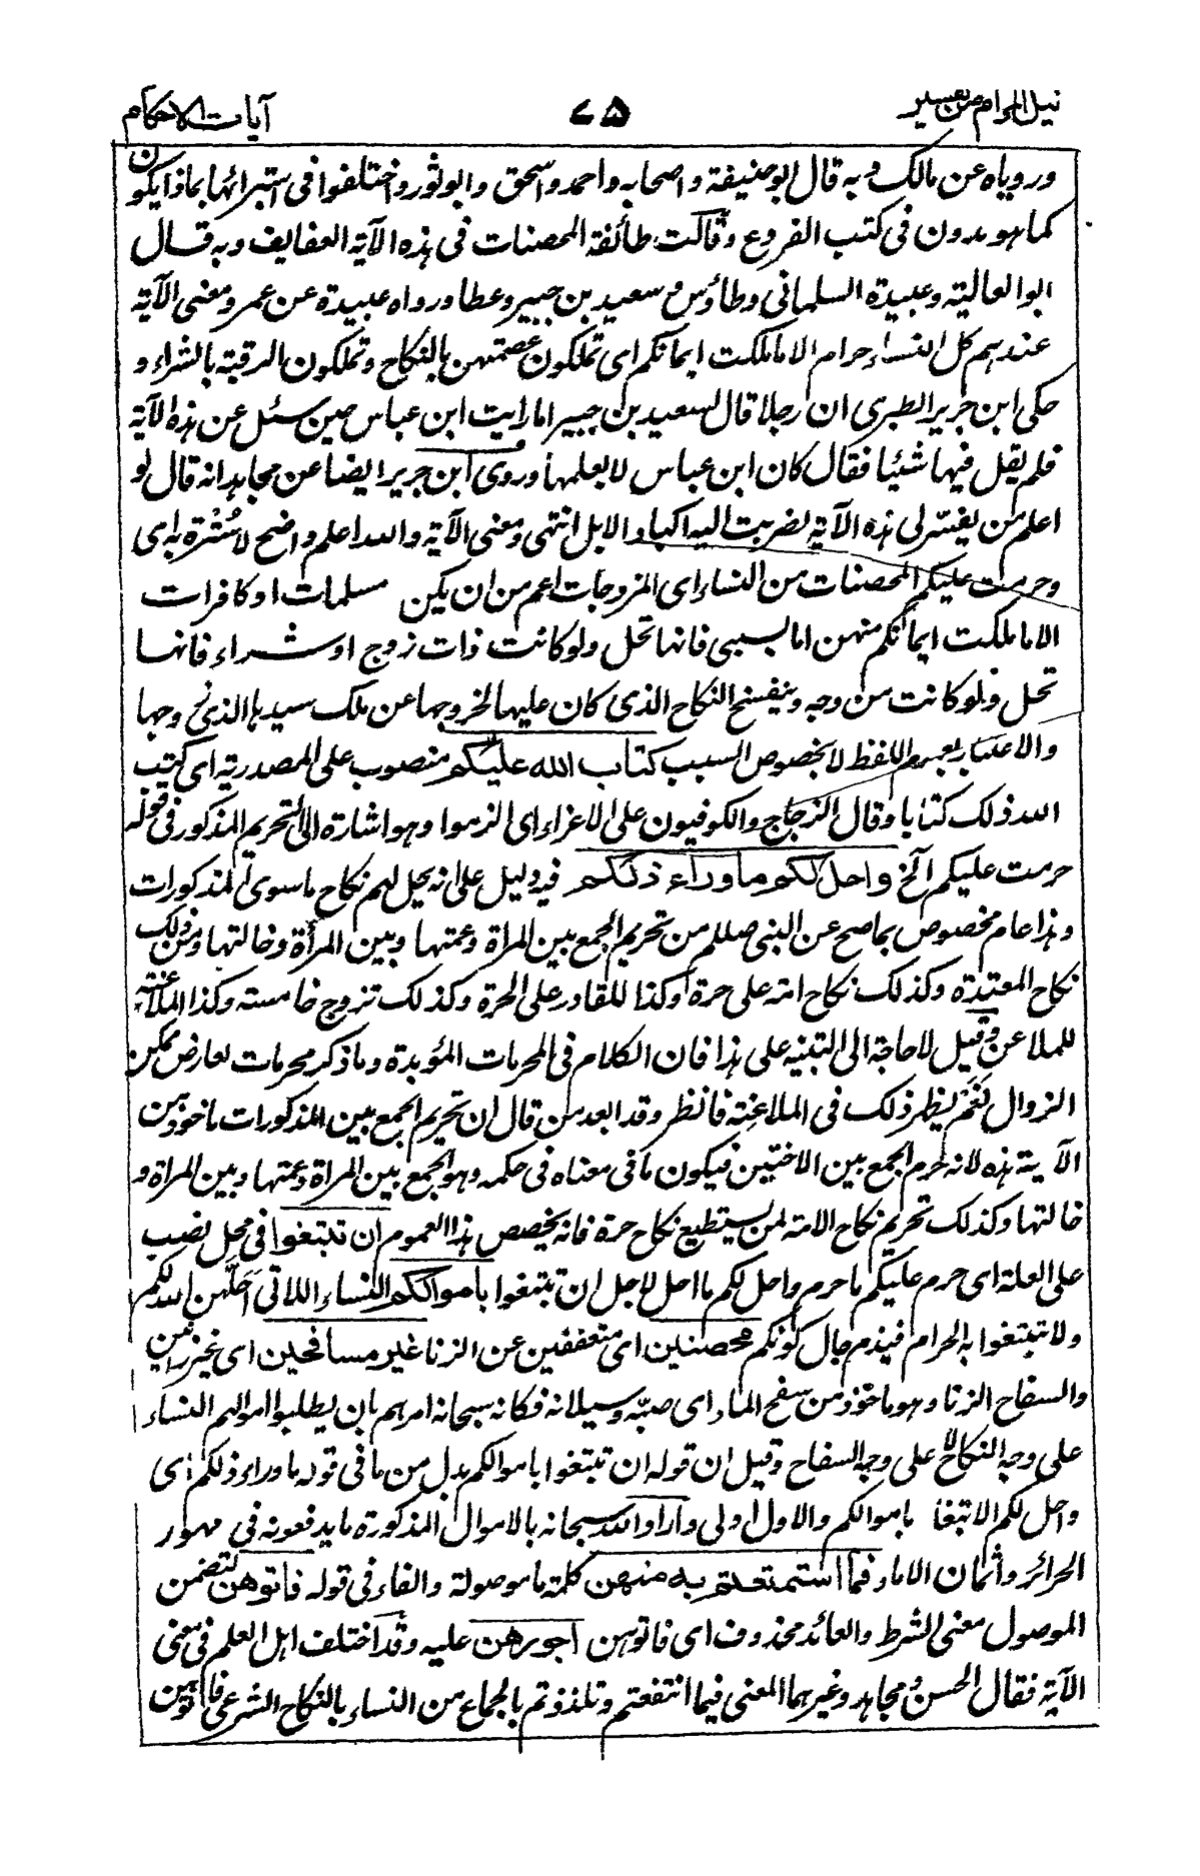 نيل المرام من تفسير ٧٥ آيات الاحكام
وروياه عن مالك وبه قال ابو حنيفة واصحابه واحمد واسحق وابو ثور واختلفوا فى استبرائها بماذا يكون
كما هو مدون فى كتب الفروع وقالت طائفة المحصنات فى هذه الآية العفايف وبه قال
ابو العالية وعبيدة السلمانى وطاؤس وسعيد بن جبير وعطا ورواه عبيدة عن عمر ومعنى الآية
عندهم كل النساء حرام الا ما ملكت ايمانكم اى تملكون عصمتهن بالنكاح وتملكون الرقبة بالشراء و
حكى ابن جرير الطبرى ان رجلا قال لسعيد بن جبير اما رايت ابن عباس حين سئل عن هذه الآية
فلم يقل فيها شئيا فقال كان ابن عباس لا يعلمها وروى ابن جرير ايضا عن مجاهد انه قال لو
اعلم من يفسر لى هذه الآية لضربت اليه اكباد الابل انتهى ومعنى الآية والله اعلم واضح لا سُتْرة به اى
وحرمت عليكم المحصنات من النساء اى المزوجات اعم من ان يكن مسلمات او كافرات
الا ما ملكت ايمانكم منهن اما بسبى فانها تحل ولو كانت ذات زوج او شراء فانها
تحل ولو كانت مزوجه وينفسخ النكاح الذى كان عليها لخروجها عن ملك سيدها الذى زوجها
والاعتبار بعموم اللفظ لا بخصوص السبب كتاب الله عليكم منصوب على المصدرية اى كتب
الله ذلك كتابا وقال الزجاج والكوفيون على الاغراء اى الزموا وهو اشارة الى التحريم المذكور فى قوله
حرمت عليكم الخ واحل لكم ما وراء ذلكم فيه دليل على انه يحل لهم نكاح ما سوى المذكورات
وهذا عام مخصوص بما صح عن النبى صللم من تحريم الجمع بين المراة وعمتها وبين المرأة وخالتها ومن ذلك
نكاح المعتدة وكذلك نكاح امته على حرة وكذا للقادر على الحرة وكذلك تزوج خامسته وكذا الملاعنته
للملاعن وقيل لا حاجة الى التبنيه على هذا فان الكلام فى المحرمات المؤبدة وما ذكر محرمات لعارض ممكن
الزوال نَعَمْ يظر ذلك فى الملاعِنِة فانظر وقد ابعد من قال ان تحريم الجمع بين المذكورات ماخوذ من
الآية هذه لانه حرم الجمع بين الاختين فيكون ما فى معناه فى حكمه وهو الجمع بين المراة وعمتها وبين المراة و
خالتها وكذلك تحريم نكاح الامة لمن يستطيع نكاح حرة فانه يخصص هذا العموم ان تبتغوا فى محل نصب
على العلة اى حرم عليكم ما حرم واحل لكم ما احل لاجل ان تبتغوا باموالكم النساء اللاتى احلهن الله لكم
ولا تبتغوا به الحرام فيذهم حال كونكم محصنين اى متعففين عن الزنا غير مسافحين اى غير زانين
والسفاح الزنا وهو ماخوذ من سفح الماء اى صبّه وسيلانه فكانه سبحانه امرهم بان يطلبوا اموالهم النساء
على وجه النكاح لا على وجه السفاح وقيل ان قوله ان تبتغوا باموالكم بدل من ما فى قوله ما وراء ذلكم اى
واحل لكم الابتغا باموالكم والاول اولى واراد الله سبحانه بالاموال المذكورة ما يدفعونه فى مهور
الحرائر واثمان الاماء فما استمتعتم به منهن كلمة ما موصولة والفاء فى قوله فاتوهن لتضمن
الموصول معنى الشرط والعائد محذوف اى فاتوهن اجورهن عليه وقد اختلف اهل العلم فى معنى
الآية فقال الحسن ومجاهد وغيرهما المعنى فيما انتفعتم وتلذذوتم بالجماع من النساء بالنكاح الشرعى فاتوهن